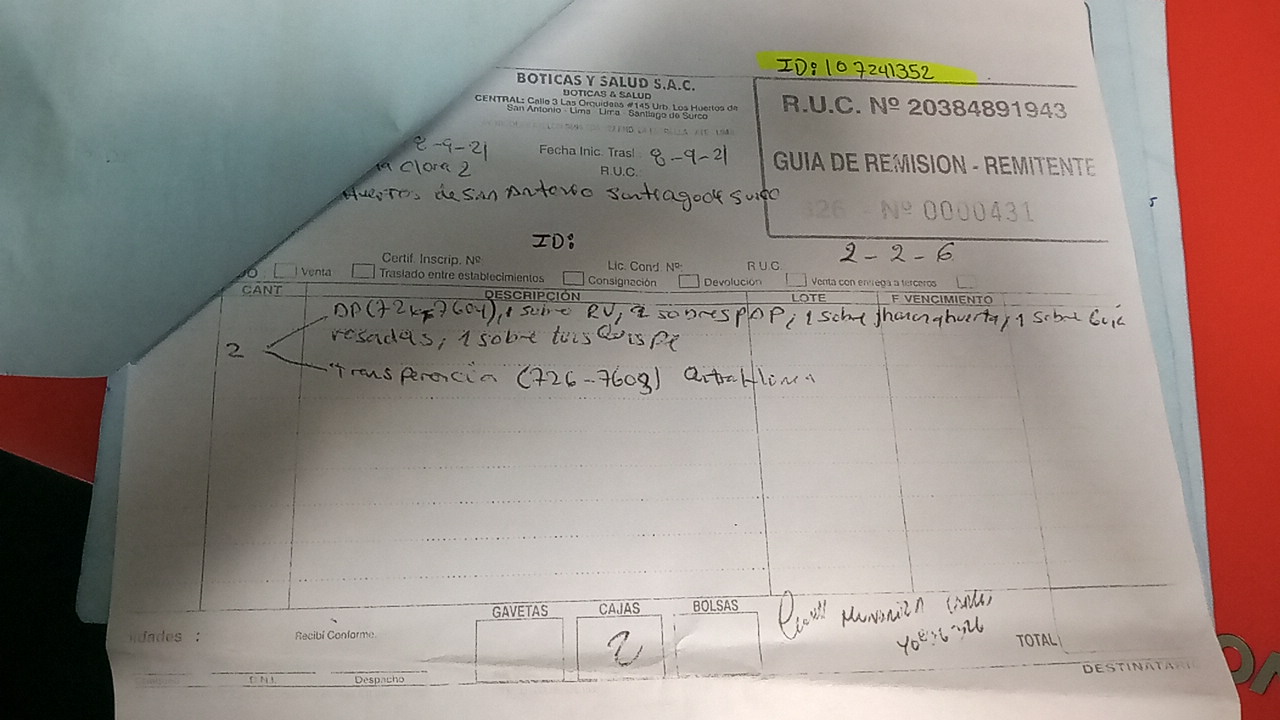 ID: 107241352
BOTICAS Y SALUD S.A.C.
BOTICAS & SALUD
CENTRAL: Calle 3 Las Orquideas #145 Urb. Los Huertos de
San Antonio - Lima - Lima - Santiago de Surco
R.U.C. Nº 20384891943
GUIA DE REMISION - REMITENTE
Nº 0000431
8-9-21 Fecha Inic. Trasl 8-9-21
Clara 2 R.U.C.
Huertos de San Antonio Santiago de Surco
ID:
2-2-6
Certif. Inscrip. Nº Lic. Cond. Nº R.U.C.
Venta Traslado entre establecimientos Consignación Devolución Venta con entrega a terceros
CANT DESCRIPCIÓN LOTE F VENCIMIENTO
1 sobre RV, 2 sobres PDP, 1 sobre 1 sobre Guia
2 rosadas, 1 sobre luis Quispe
Transferencia (726-7608)
GAVETAS CAJAS BOLSAS
2
idades :
Recibí Conforme.
TOTAL
D.N.I. Despacho
DESTINATARI